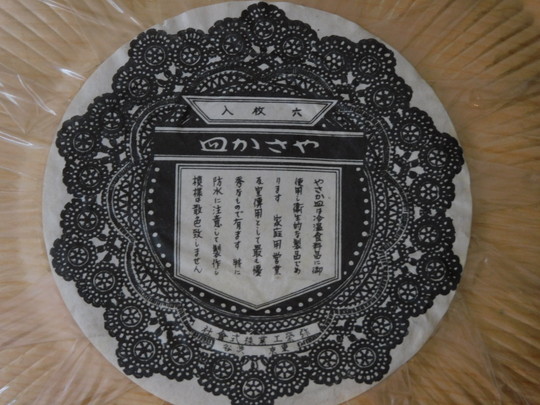 六枚入
やさか皿
やさか皿は冷温食料品に御
使用し衛生的な製品であ
ります 家庭用営業
用として最も優
秀なもので有ます 特に
防水に注意して製作し
模様は散色致しません
工業株式會社